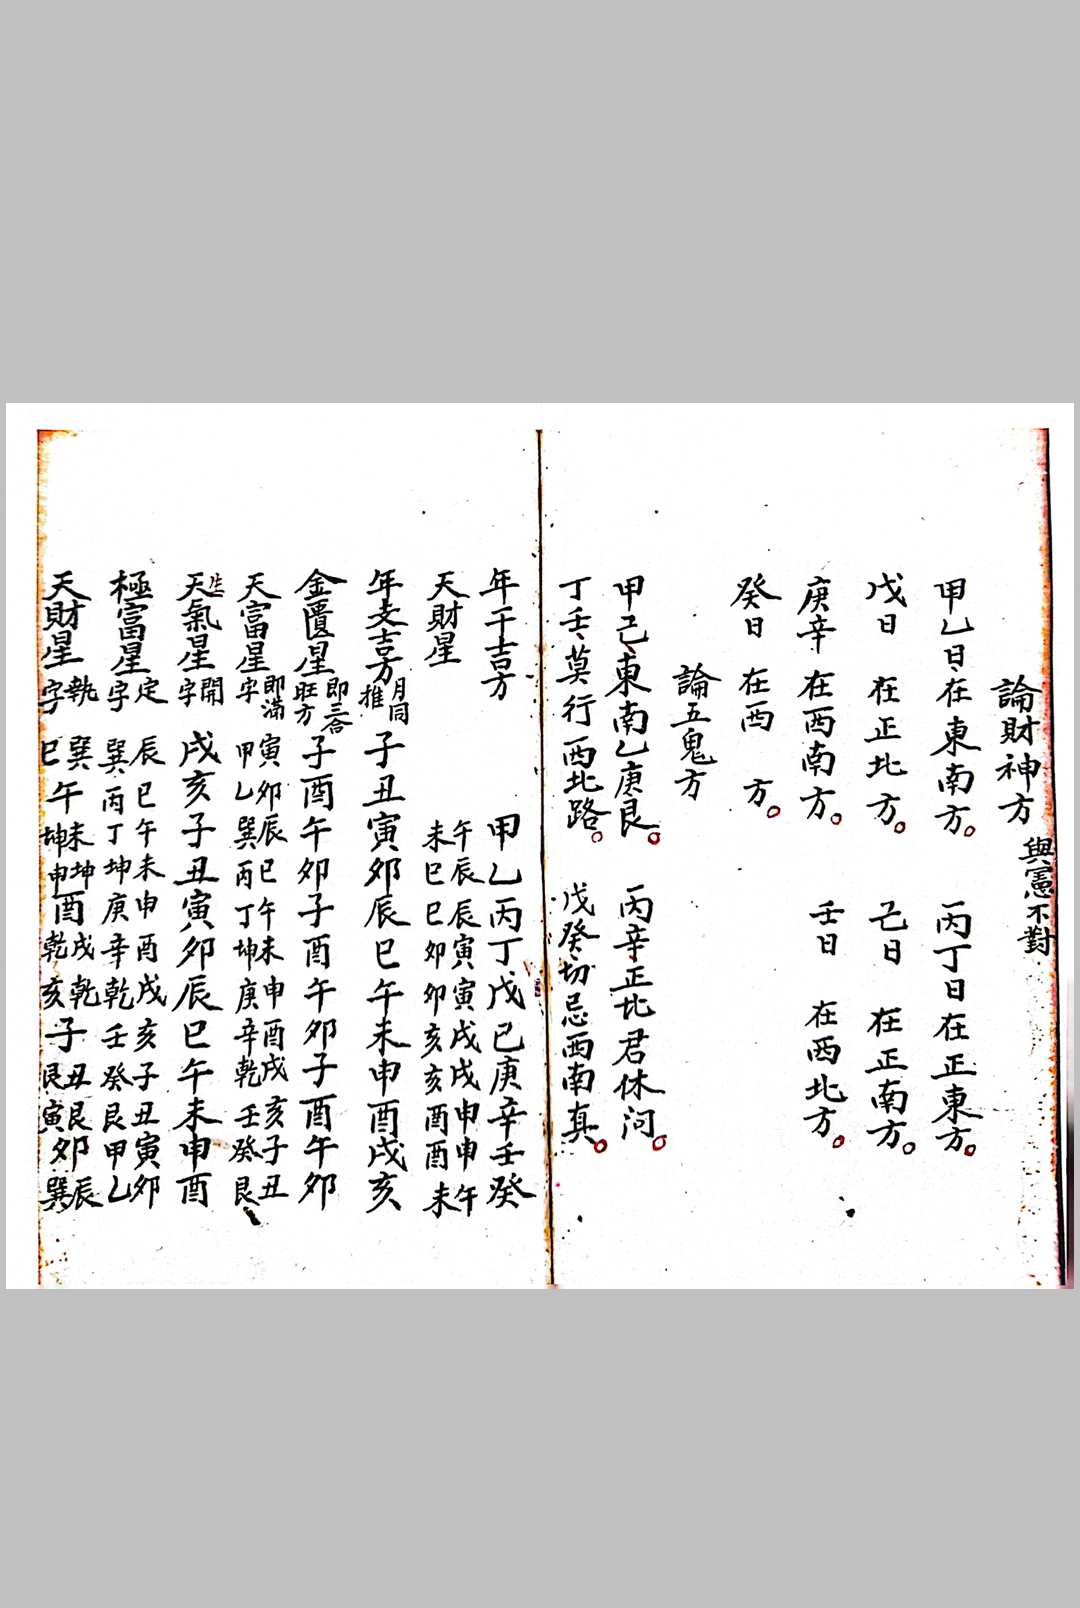 論財神方 與憲不對
甲乙日在東南方。 丙丁日在正東方。
戊日 在正北方。 己日 在正南方。
庚辛 在西南方。 壬日 在西北方。
癸日 在西 方。
論五鬼方
甲己東南乙庚艮。 丙辛正北君休问。
丁壬莫行西北路。 戊癸切忌西南真。
年干吉方 甲乙丙丁戊己庚辛壬癸
天財星 午辰辰寅寅戌戌申申午
未巳巳卯卯亥亥酉酉未
年支吉方 月同推 子丑寅卯辰巳午未申酉戌亥
金匱星 即三合旺方 子酉午卯子酉午卯子酉午卯
天富星 即滿字 寅卯辰巳午未申酉戌亥子丑
甲乙巽丙丁坤庚辛乾壬癸艮
天氣星 生 開字 戌亥子丑寅卯辰巳午未申酉
極富星 定字 辰巳午未申酉戌亥子丑寅卯
巽丙丁坤庚辛乾壬癸艮甲乙
天財星 執字 巽巳午未坤坤申酉戌乾乾亥子丑艮艮寅卯辰巽